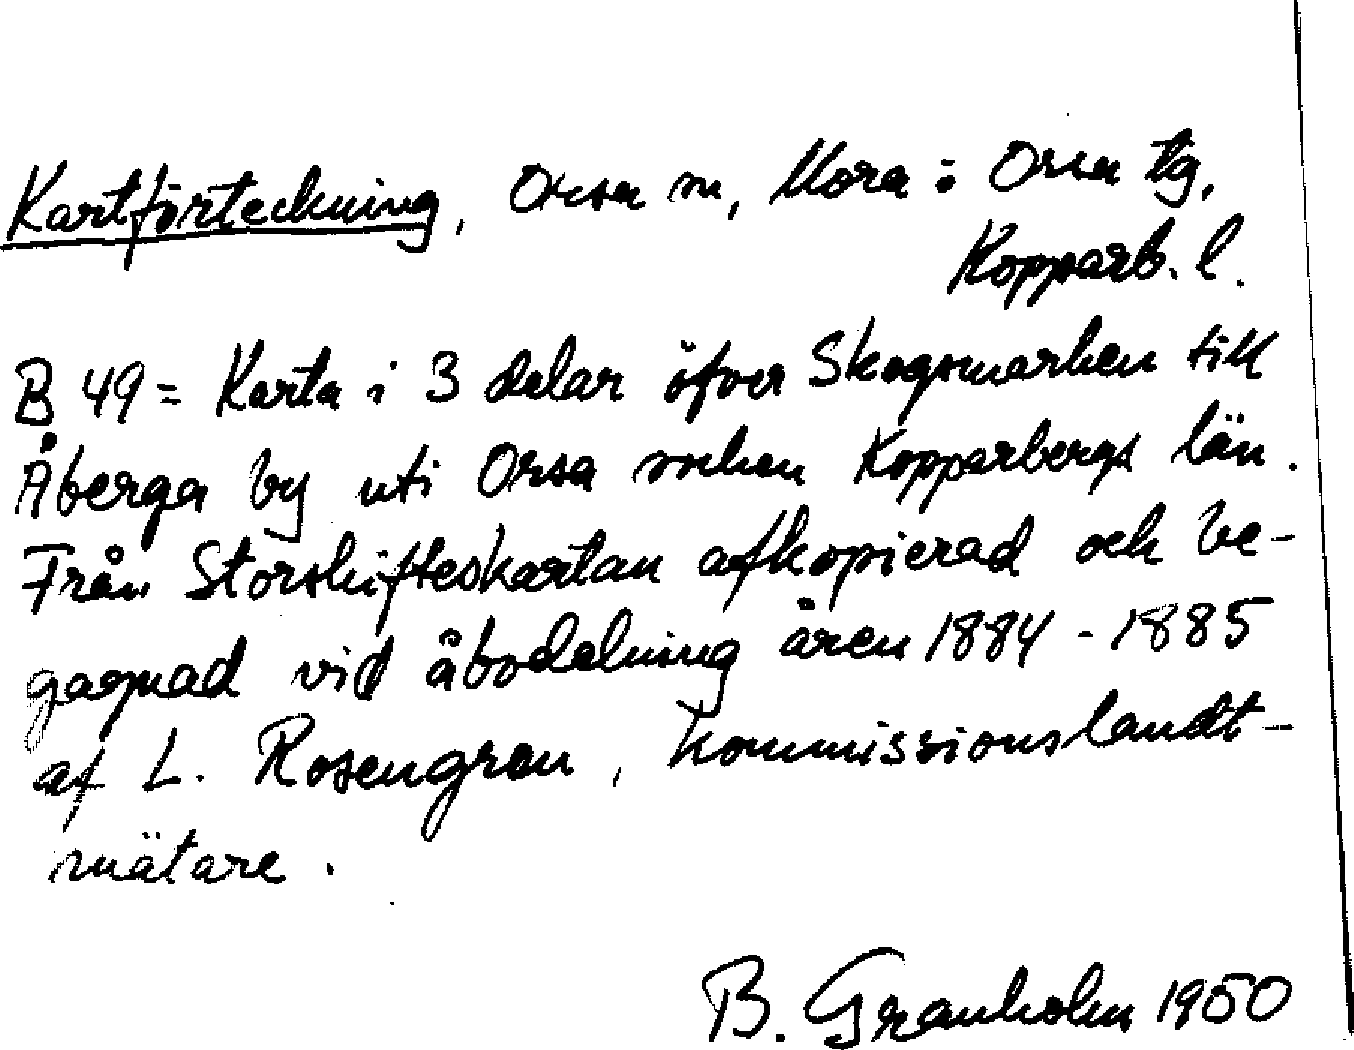 Kartförteckning, Orsa sn, Mora o Orsa tg,
Kopparb. l.
B 49 = Karta i 3 delar öfver Skogsmarken till
Åberga by uti Orsa socken Kopparbergs län.
Från Storskifteskartan afkopierad och be-
gagnad vid åbodelning åren 1884 - 1885
af L. Rosengren, Kommissionslandt-
mätare.
B. Granholm 1950